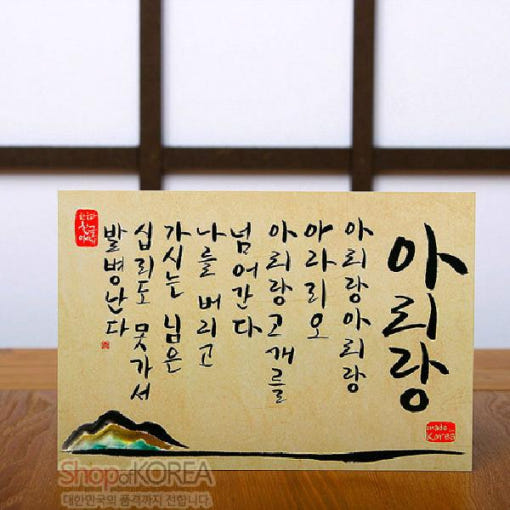 아리랑
아리랑아리랑
아라리오
아리랑고개를
넘어간다
나를 버리고
가시는 님은
십리도 못가서
발병난다
made in
Korea
Shop of KOREA
대한민국의 품격까지 전합니다